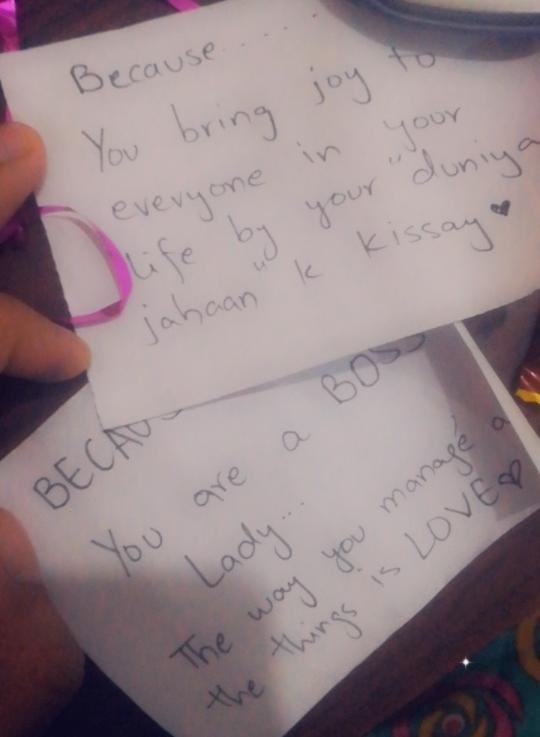 Because.....
You bring joy to
everyone in your
life by your "duniya
jahaan" k kissay
BECAUS
You are a BOSS
Lady...
The way you manage a
the things is LOVE